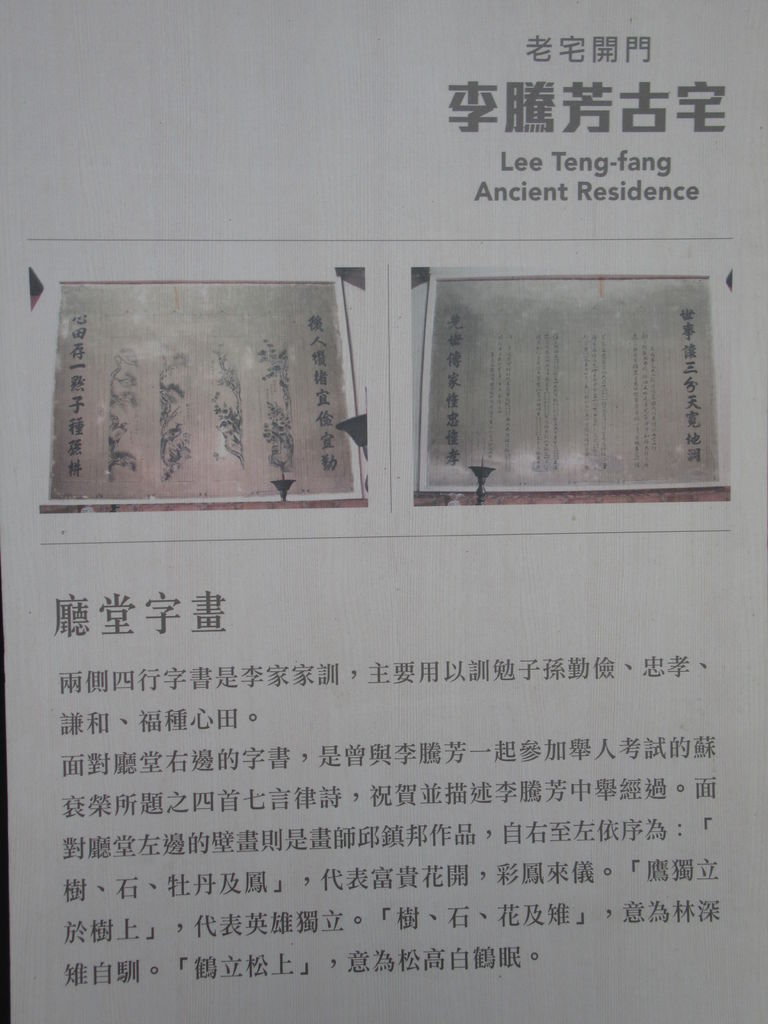 老宅開門
李騰芳古宅
Lee Teng-fang
Ancient Residence
後人續緒宜儉宜勤
心田存一點子種孫耕
世事讓三分天寬地闊
傳家惟忠惟孝
廳堂字畫
兩側四行字書是李家家訓，主要用以訓勉子孫勤儉、忠孝、
謙和、福種心田。
面對廳堂右邊的字書，是曾與李騰芳一起參加舉人考試的蘇
袞榮所題之四首七言律詩，祝賀並描述李騰芳中舉經過。面
對廳堂左邊的壁畫則是畫師邱鎮邦作品，自右至左依序為：「
樹、石、牡丹及鳳」，代表富貴花開，彩鳳來儀。「鷹獨立
於樹上」，代表英雄獨立。「樹、石、花及雉」，意為林深
雉自馴。「鶴立松上」，意為松高白鶴眠。